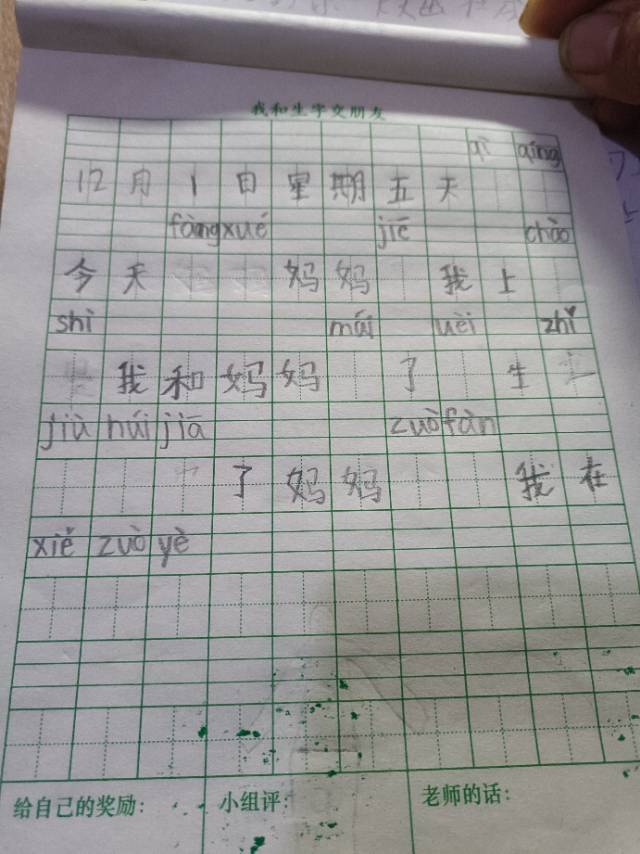 我和生字交朋友
qì qíng
12月1日星期五天
fàngxué jiē chāo
今天妈妈我上
shì mǎi uèi zhǐ
我和妈妈了生
jiù húi jiā zuò fàn
了妈妈我在
xiě zuò yè
给自己的奖励: 小组评: 老师的话: